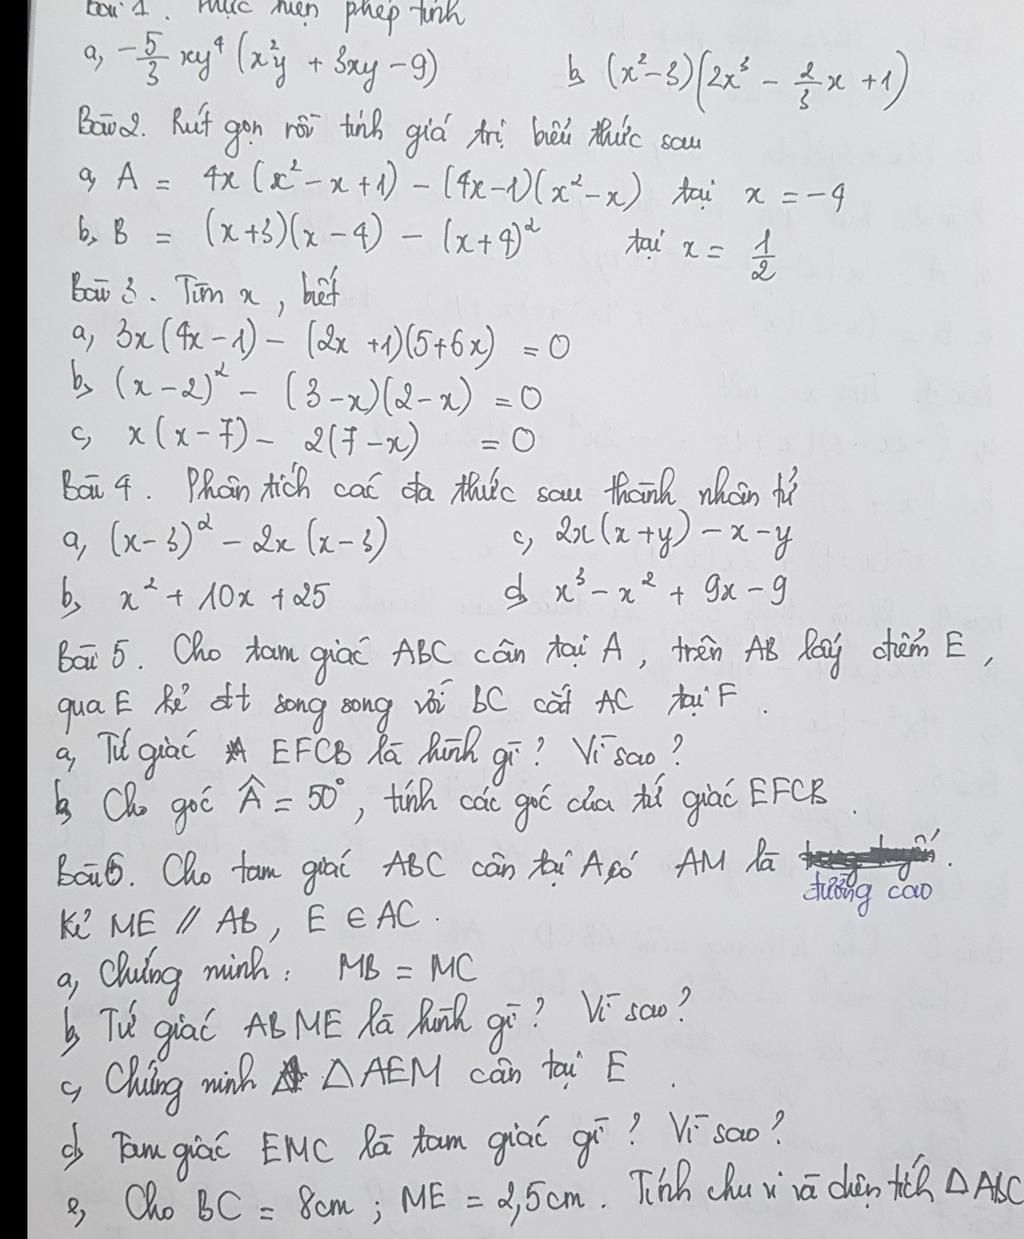 Bài 1. Thực hiện phép tính
a, -5/3 xy⁴ (x²y + 3xy - 9) b, (x² - 3)(2x³ - 2/3 x + 1)
Bài 2. Rút gọn rồi tính giá trị biểu thức sau
a, A = 4x (x² - x + 1) - (4x - 1)(x² - x) tại x = -4
b, B = (x + 3)(x - 4) - (x + 4)² tại x = 1/2
Bài 3. Tìm x, biết
a, 3x (4x - 1) - (2x + 1)(5 + 6x) = 0
b, (x - 2)² - (3 - x)(2 - x) = 0
c, x (x - 7) - 2(7 - x) = 0
Bài 4. Phân tích các đa thức sau thành nhân tử
a, (x - 3)² - 2x (x - 3) c, 2x (x + y) - x - y
b, x² + 10x + 25 d, x³ - x² + 9x - 9
Bài 5. Cho tam giác ABC cân tại A, trên AB lấy điểm E,
qua E kẻ đt song song với BC cắt AC tại F.
a, Tứ giác EFCB là hình gì? Vì sao?
b, Cho góc Â = 50°, tính các góc của tứ giác EFCB.
Bài 6. Cho tam giác ABC cân tại A có AM là đường cao.
Kẻ ME // AB, E ∈ AC.
a, Chứng minh: MB = MC
b, Tứ giác ABME là hình gì? Vì sao?
c, Chứng minh △AEM cân tại E.
d, Tam giác EMC là tam giác gì? Vì sao?
e, Cho BC = 8cm; ME = 2,5cm. Tính chu vi và diện tích △ABC